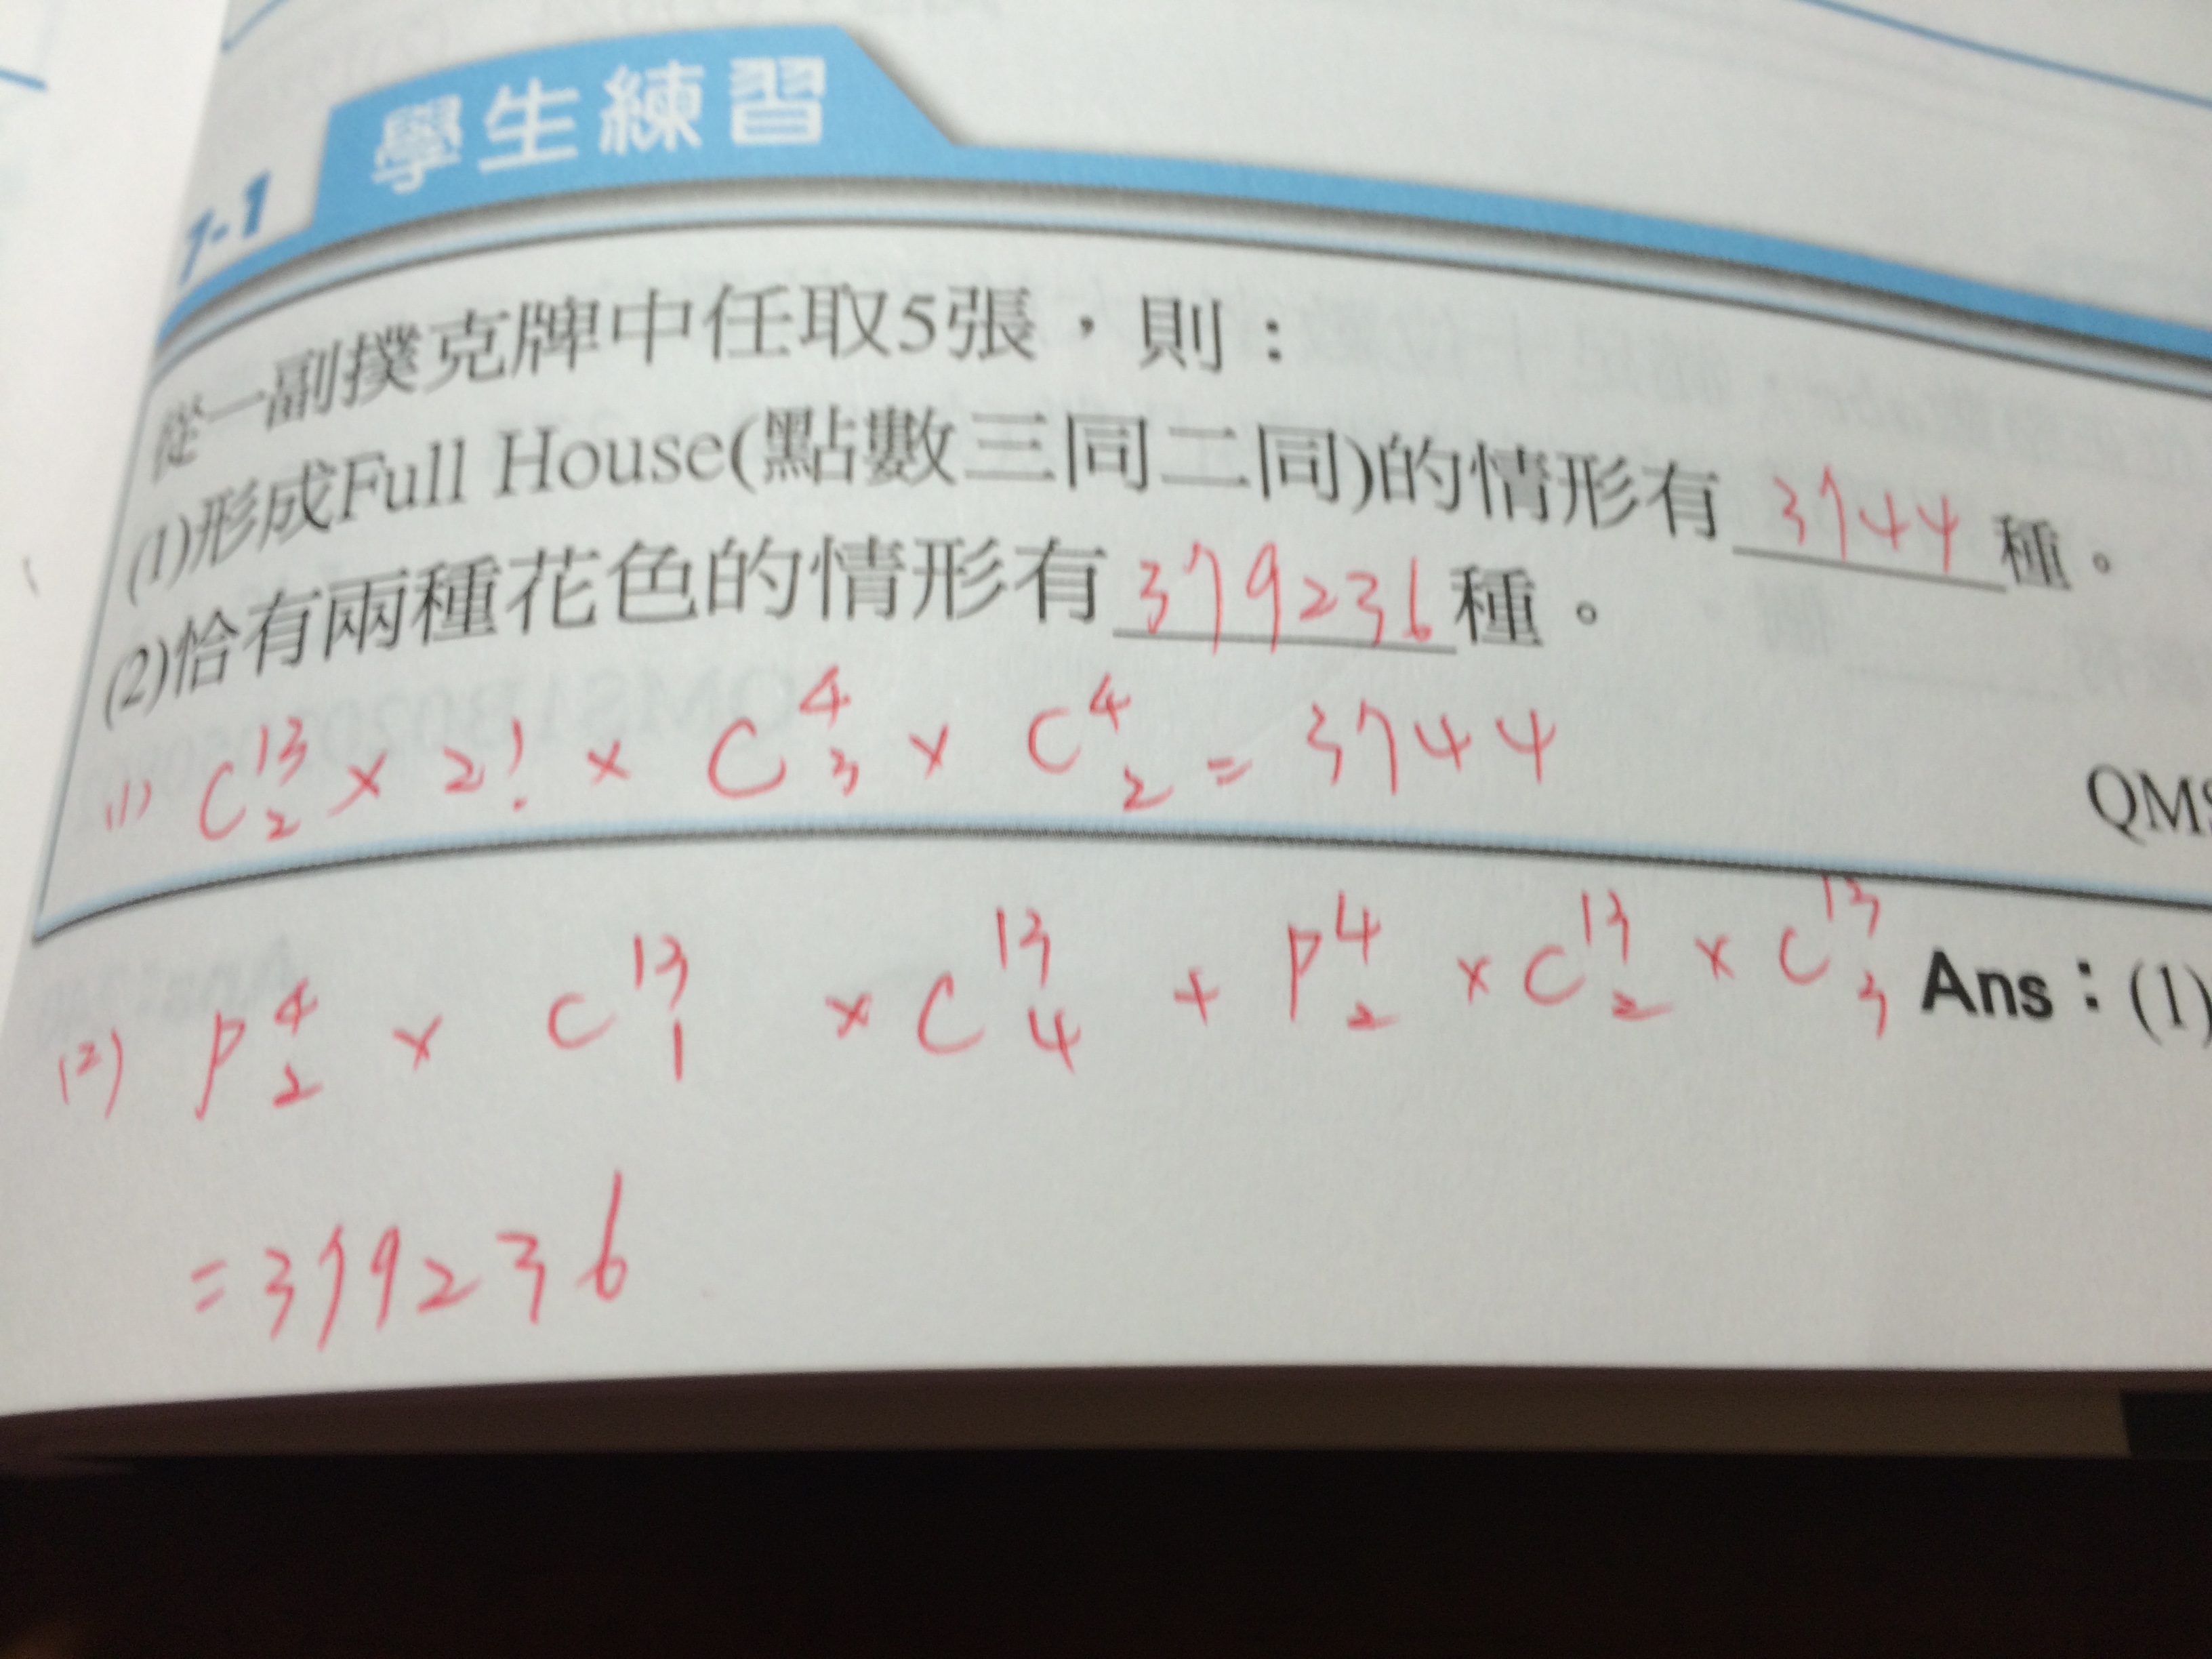 1-1 學生練習
從一副撲克牌中任取5張，則：
(1)形成Full House(點數三同二同)的情形有 3744 種。
(2)恰有兩種花色的情形有 379236 種。
(1) C¹³₂ × 2! × C⁴₃ × C⁴₂ = 3744
QMS
(2) P⁴₂ × C¹³₁ × C¹³₄ + P⁴₂ × C¹³₂ × C¹³₃
Ans：(1)
= 379236